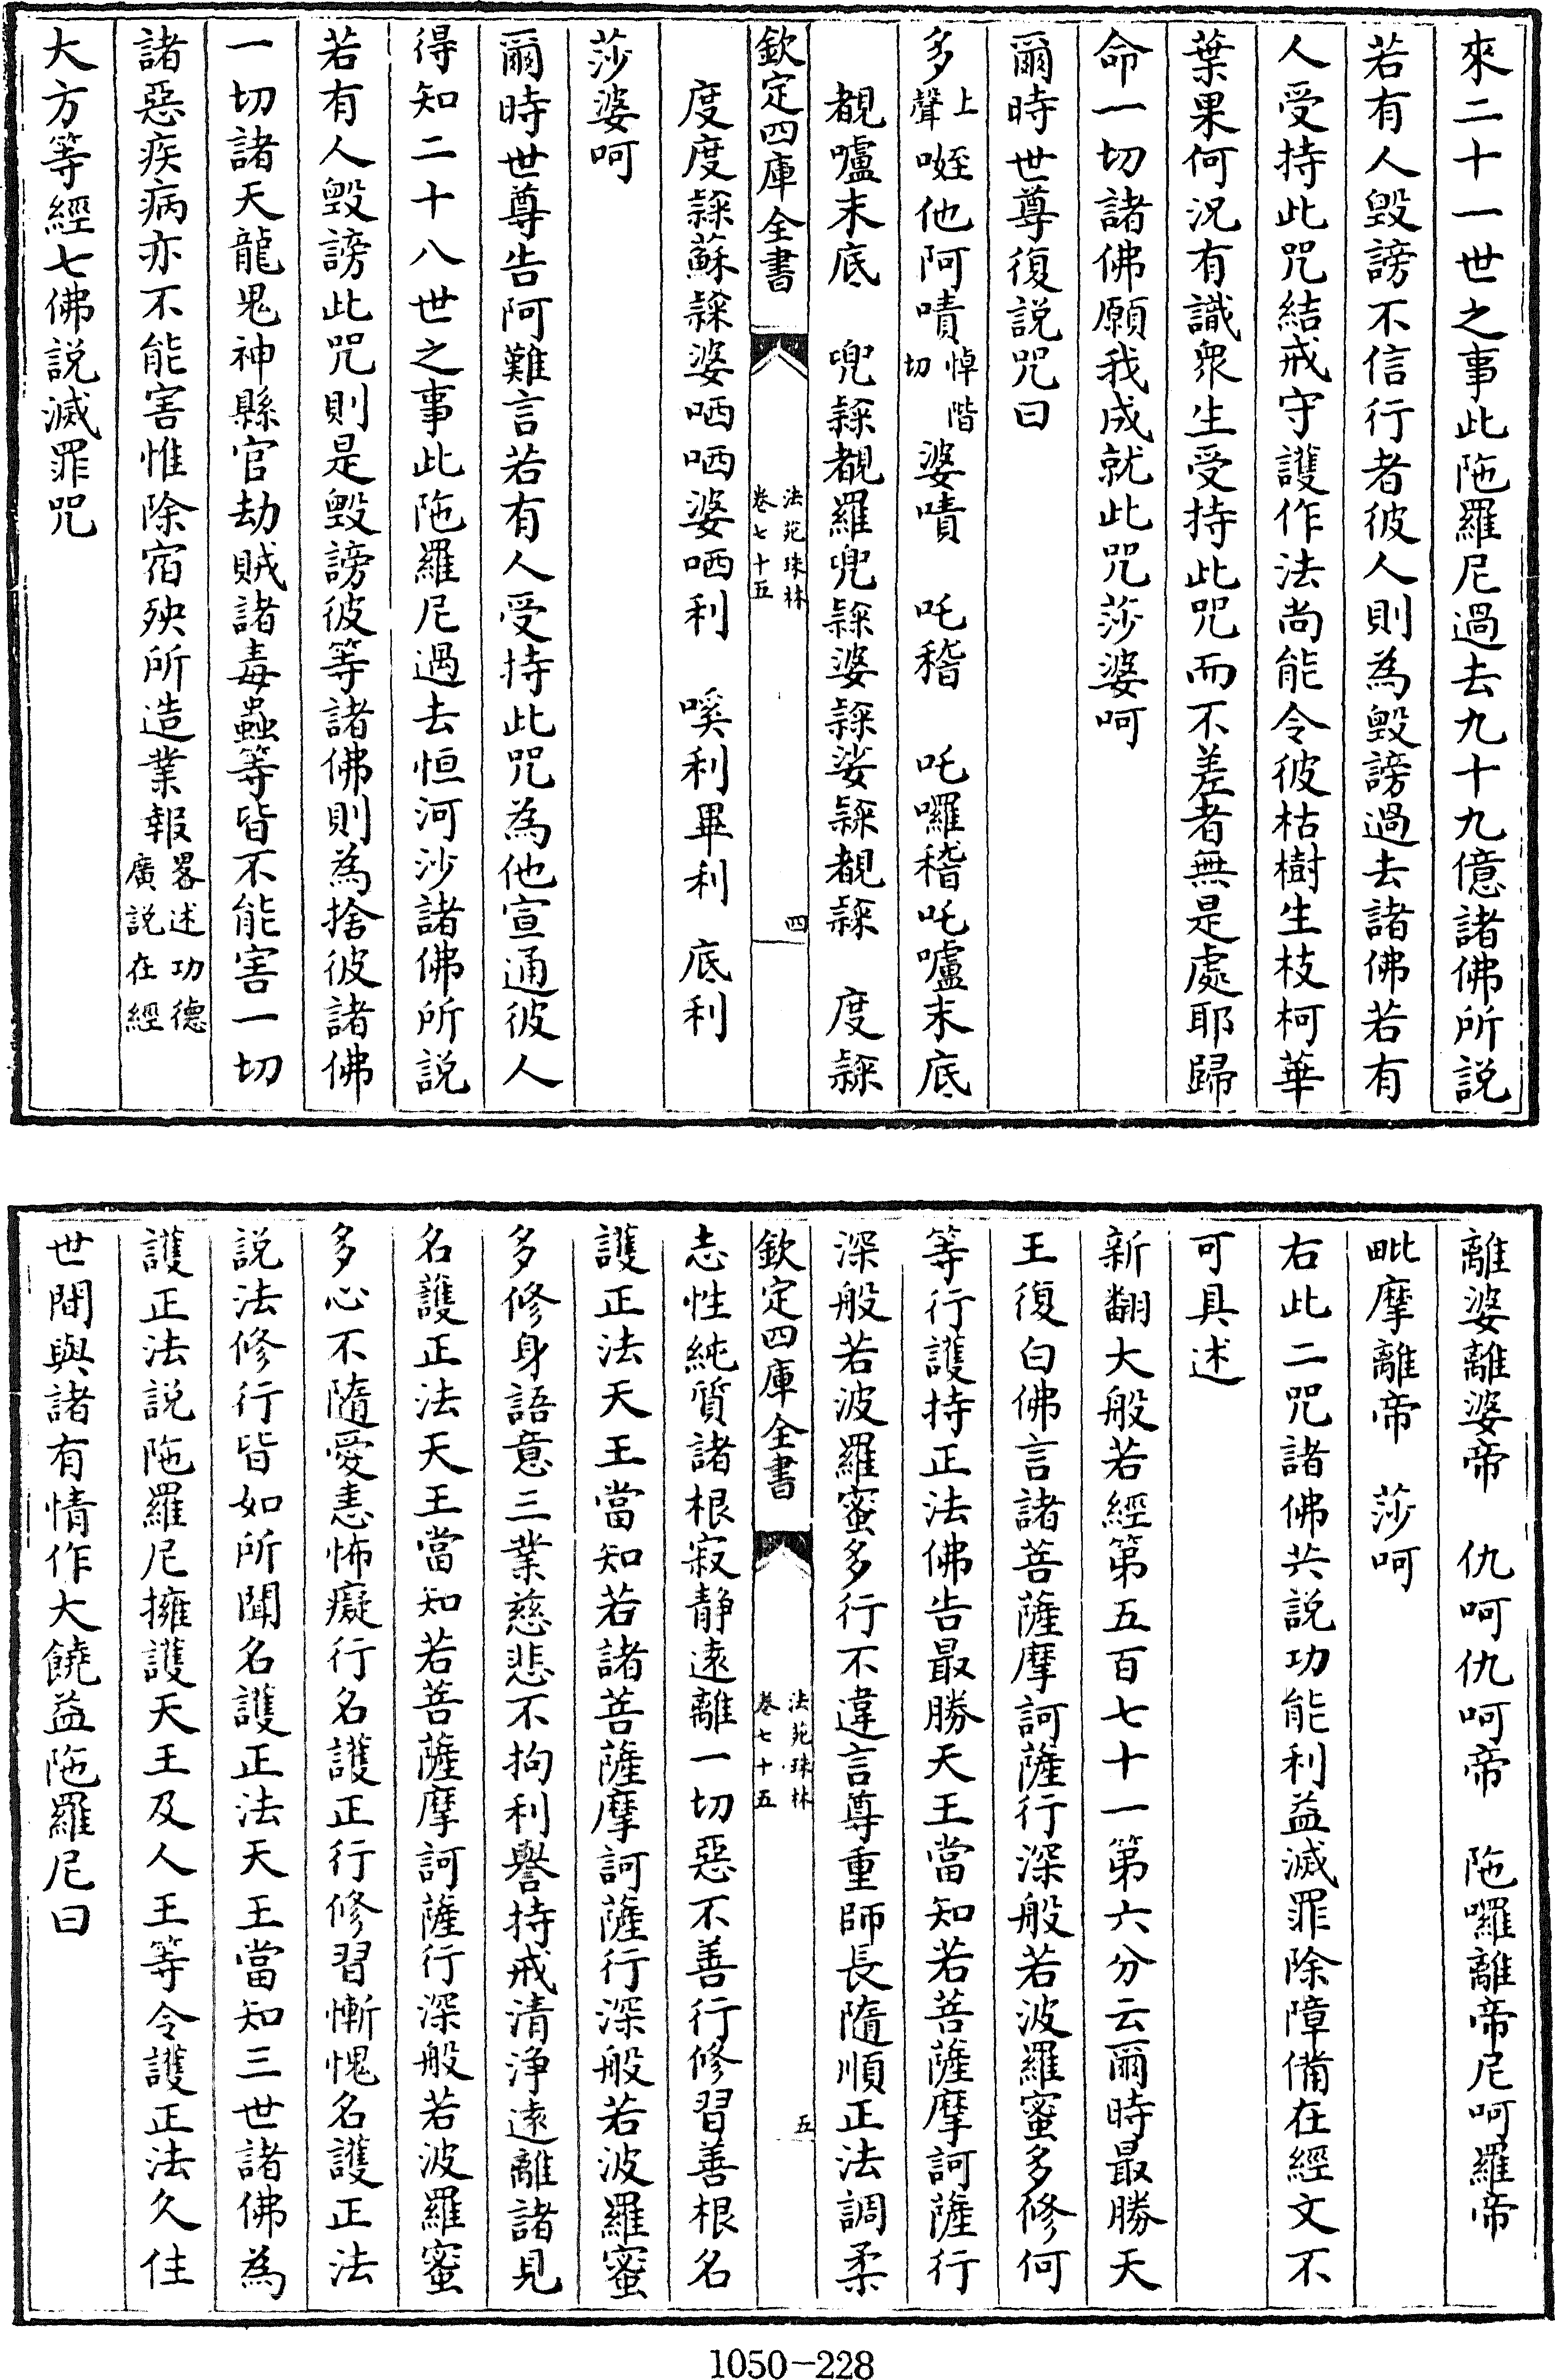 來二十一世之事此陁羅尼過去九十九億諸佛所説
若有人毀謗不信行者彼人則為毀謗過去諸佛若有
人受持此咒結戒守護作法尚能令彼枯樹生枝柯華
葉果何況有識衆生受持此咒而不差者無是處耶歸
命一切諸佛願我成就此咒莎婆呵
爾時世尊復説咒曰
多上聲咥他阿嘖悼階切婆嘖　吒稽　吒囉稽吒嚧末底
覩嚧末底　兜隸覩羅兜隸婆隸娑隸覩隸　度隸
欽定四庫全書
法苑珠林
卷七十五
四
度度隸蘇隸婆哂哂婆哂利　嘆利畢利　底利
莎婆呵
爾時世尊告阿難言若有人受持此咒為他宣通彼人
得知二十八世之事此陁羅尼過去恒河沙諸佛所説
若有人毀謗此咒則是毀謗彼等諸佛則為捨彼諸佛
一切諸天龍鬼神縣官劫賊諸毒蟲等皆不能害一切
諸惡疾病亦不能害惟除宿殃所造業報畧述功德廣説在經
大方等經七佛説滅罪咒
離婆離婆帝　仇呵仇呵帝　陁囉離帝尼呵羅帝
毗摩離帝　莎呵
右此二咒諸佛共説功能利益滅罪除障備在經文不
可具述
新翻大般若經第五百七十一第六分云爾時最勝天
王復白佛言諸菩薩摩訶薩行深般若波羅蜜多修何
等行護持正法佛告最勝天王當知若菩薩摩訶薩行
深般若波羅蜜多行不違言尊重師長隨順正法調柔
欽定四庫全書
法苑珠林
卷七十五
五
志性純質諸根寂静逺離一切惡不善行修習善根名
護正法天王當知若諸菩薩摩訶薩行深般若波羅蜜
多修身語意三業慈悲不拘利譽持戒清浄逺離諸見
名護正法天王當知若菩薩摩訶薩行深般若波羅蜜
多心不隨愛恚怖癡行名護正行修習慚愧名護正法
説法修行皆如所聞名護正法天王當知三世諸佛為
護正法説陁羅尼擁護天王及人王等令護正法久住
世間與諸有情作大饒益陁羅尼曰
1050-228